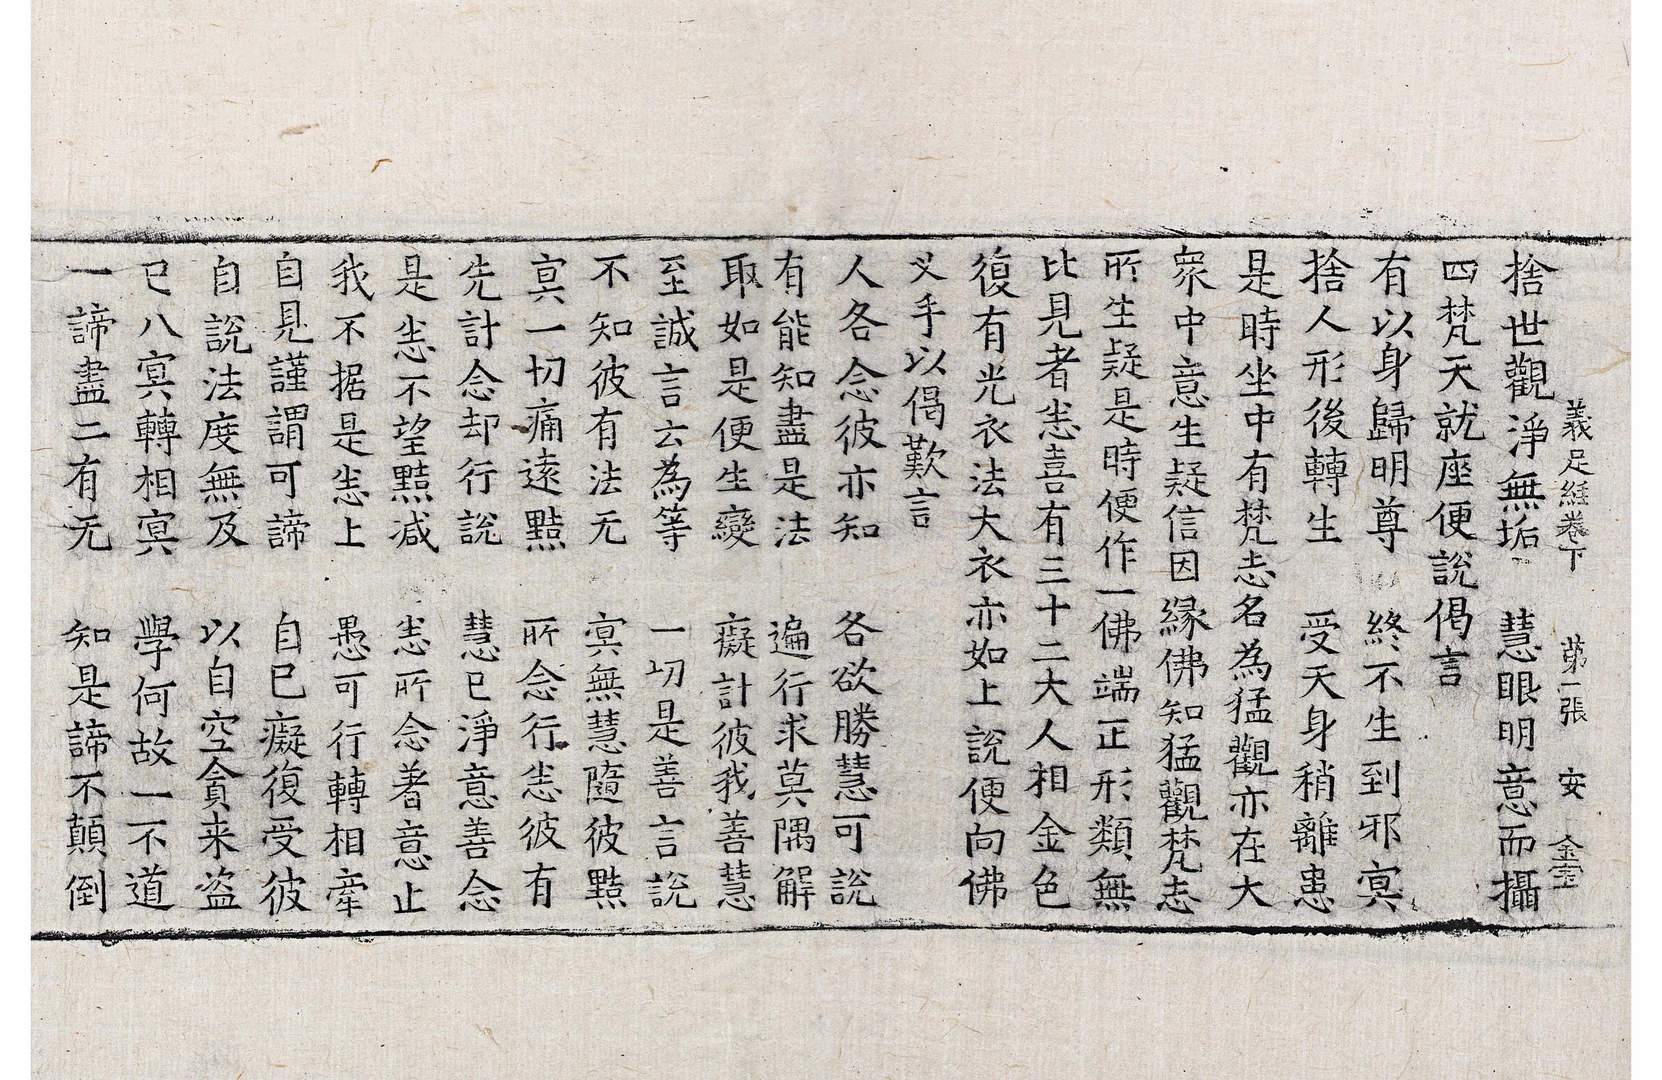 義足經卷下 苐一張 安 金宝
捨世觀淨無垢 慧眼明意而攝
四梵天就座便說偈言
有以身歸明尊 終不生到邪㝠
捨人形後轉生 受天身稍離患
是時坐中有梵志名為猛觀亦在大
衆中意生疑信因緣佛知猛觀梵志
所生疑是時便作一佛端正形類無
比見者恙喜有三十二大人相金色
復有光衣法大衣亦如上說便向佛
叉手以偈歎言
人各念彼亦知 各欲勝慧可說
有能知盡是法 遍行求莫隅解
取如是便生變 癡計彼我善慧
至誠言云為等 一切是善言說
不知彼有法无 㝠無慧隨彼黠
㝠一切痛遠黠 所念行恙彼有
先計念却行說 慧已淨意善念
是恙不望黠减 恙所念著意止
我不据是恙上 愚可行轉相牽
自見謹謂可諦 自已癡復受彼
自說法度無及 以自空貪来盗
已八㝠轉相㝠 學何故一不道
一諦盡二有无 知是諦不顛倒